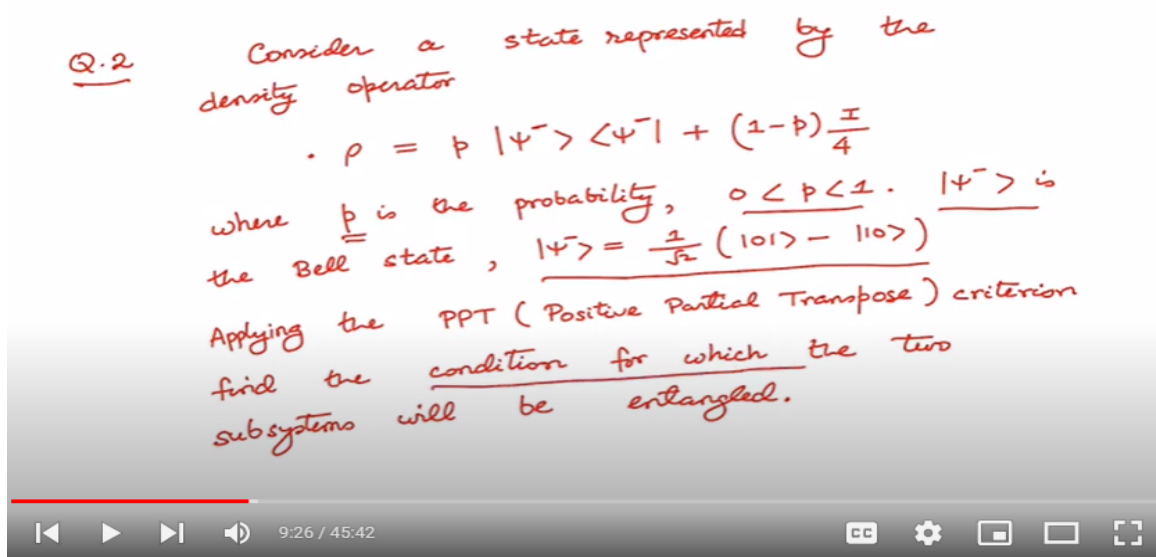 Q.2 Consider a state represented by the
density operator
· ρ = p |ψ⁻> <ψ⁻| + (1-p) I/4
where p is the probability, 0 < p < 1. |ψ⁻> is
the Bell state, |ψ⁻> = 1/√2 ( |01> - |10> )
Applying the PPT ( Positive Partial Transpose ) criterion
find the condition for which the two
subsystems will be entangled.
9:26 / 45:42 CC